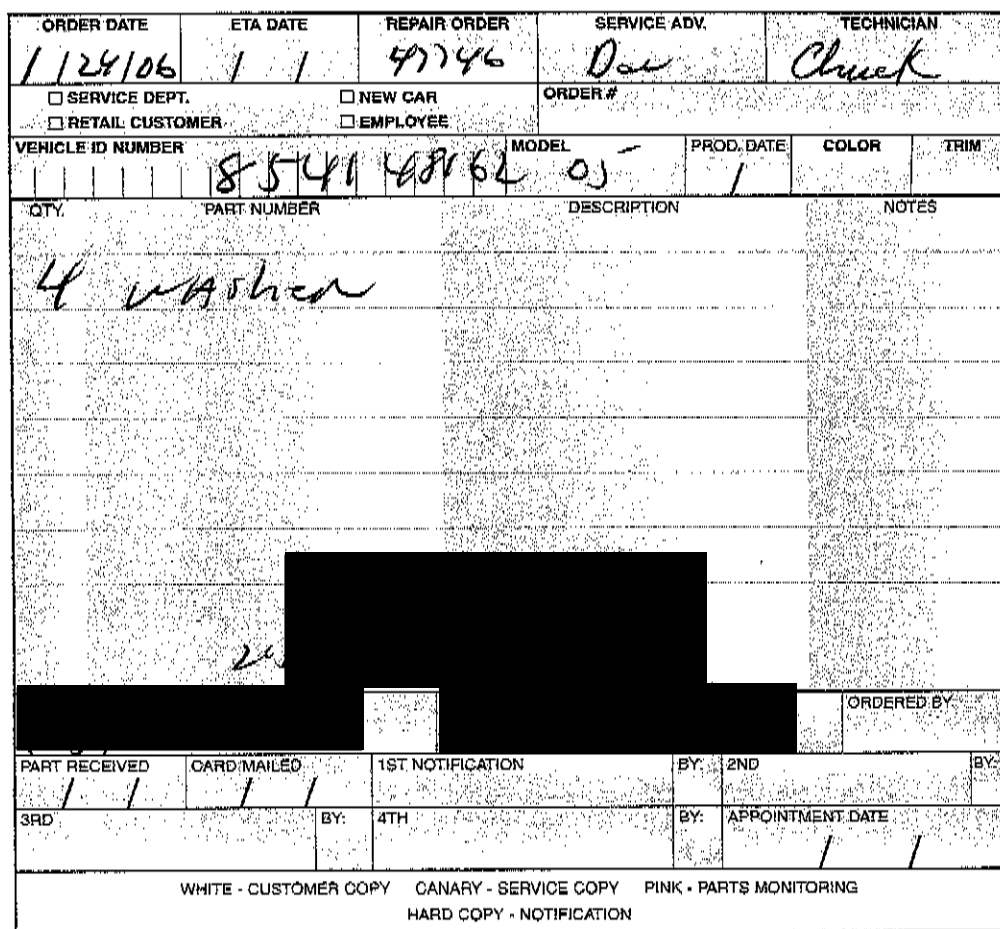 ORDER DATE ETA DATE REPAIR ORDER SERVICE ADV. TECHNICIAN
1/24/06 / / 47746 Chuck
☐ SERVICE DEPT. ☐ NEW CAR ORDER #
☐ RETAIL CUSTOMER ☐ EMPLOYEE
VEHICLE ID NUMBER MODEL PROD. DATE COLOR TRIM
854148162 05 /
QTY. PART NUMBER DESCRIPTION NOTES
4 washer
ORDERED BY
PART RECEIVED CARD MAILED 1ST NOTIFICATION BY: 2ND BY:
/ / / /
3RD BY: 4TH BY: APPOINTMENT DATE
/ /
WHITE - CUSTOMER COPY CANARY - SERVICE COPY PINK - PARTS MONITORING
HARD COPY - NOTIFICATION